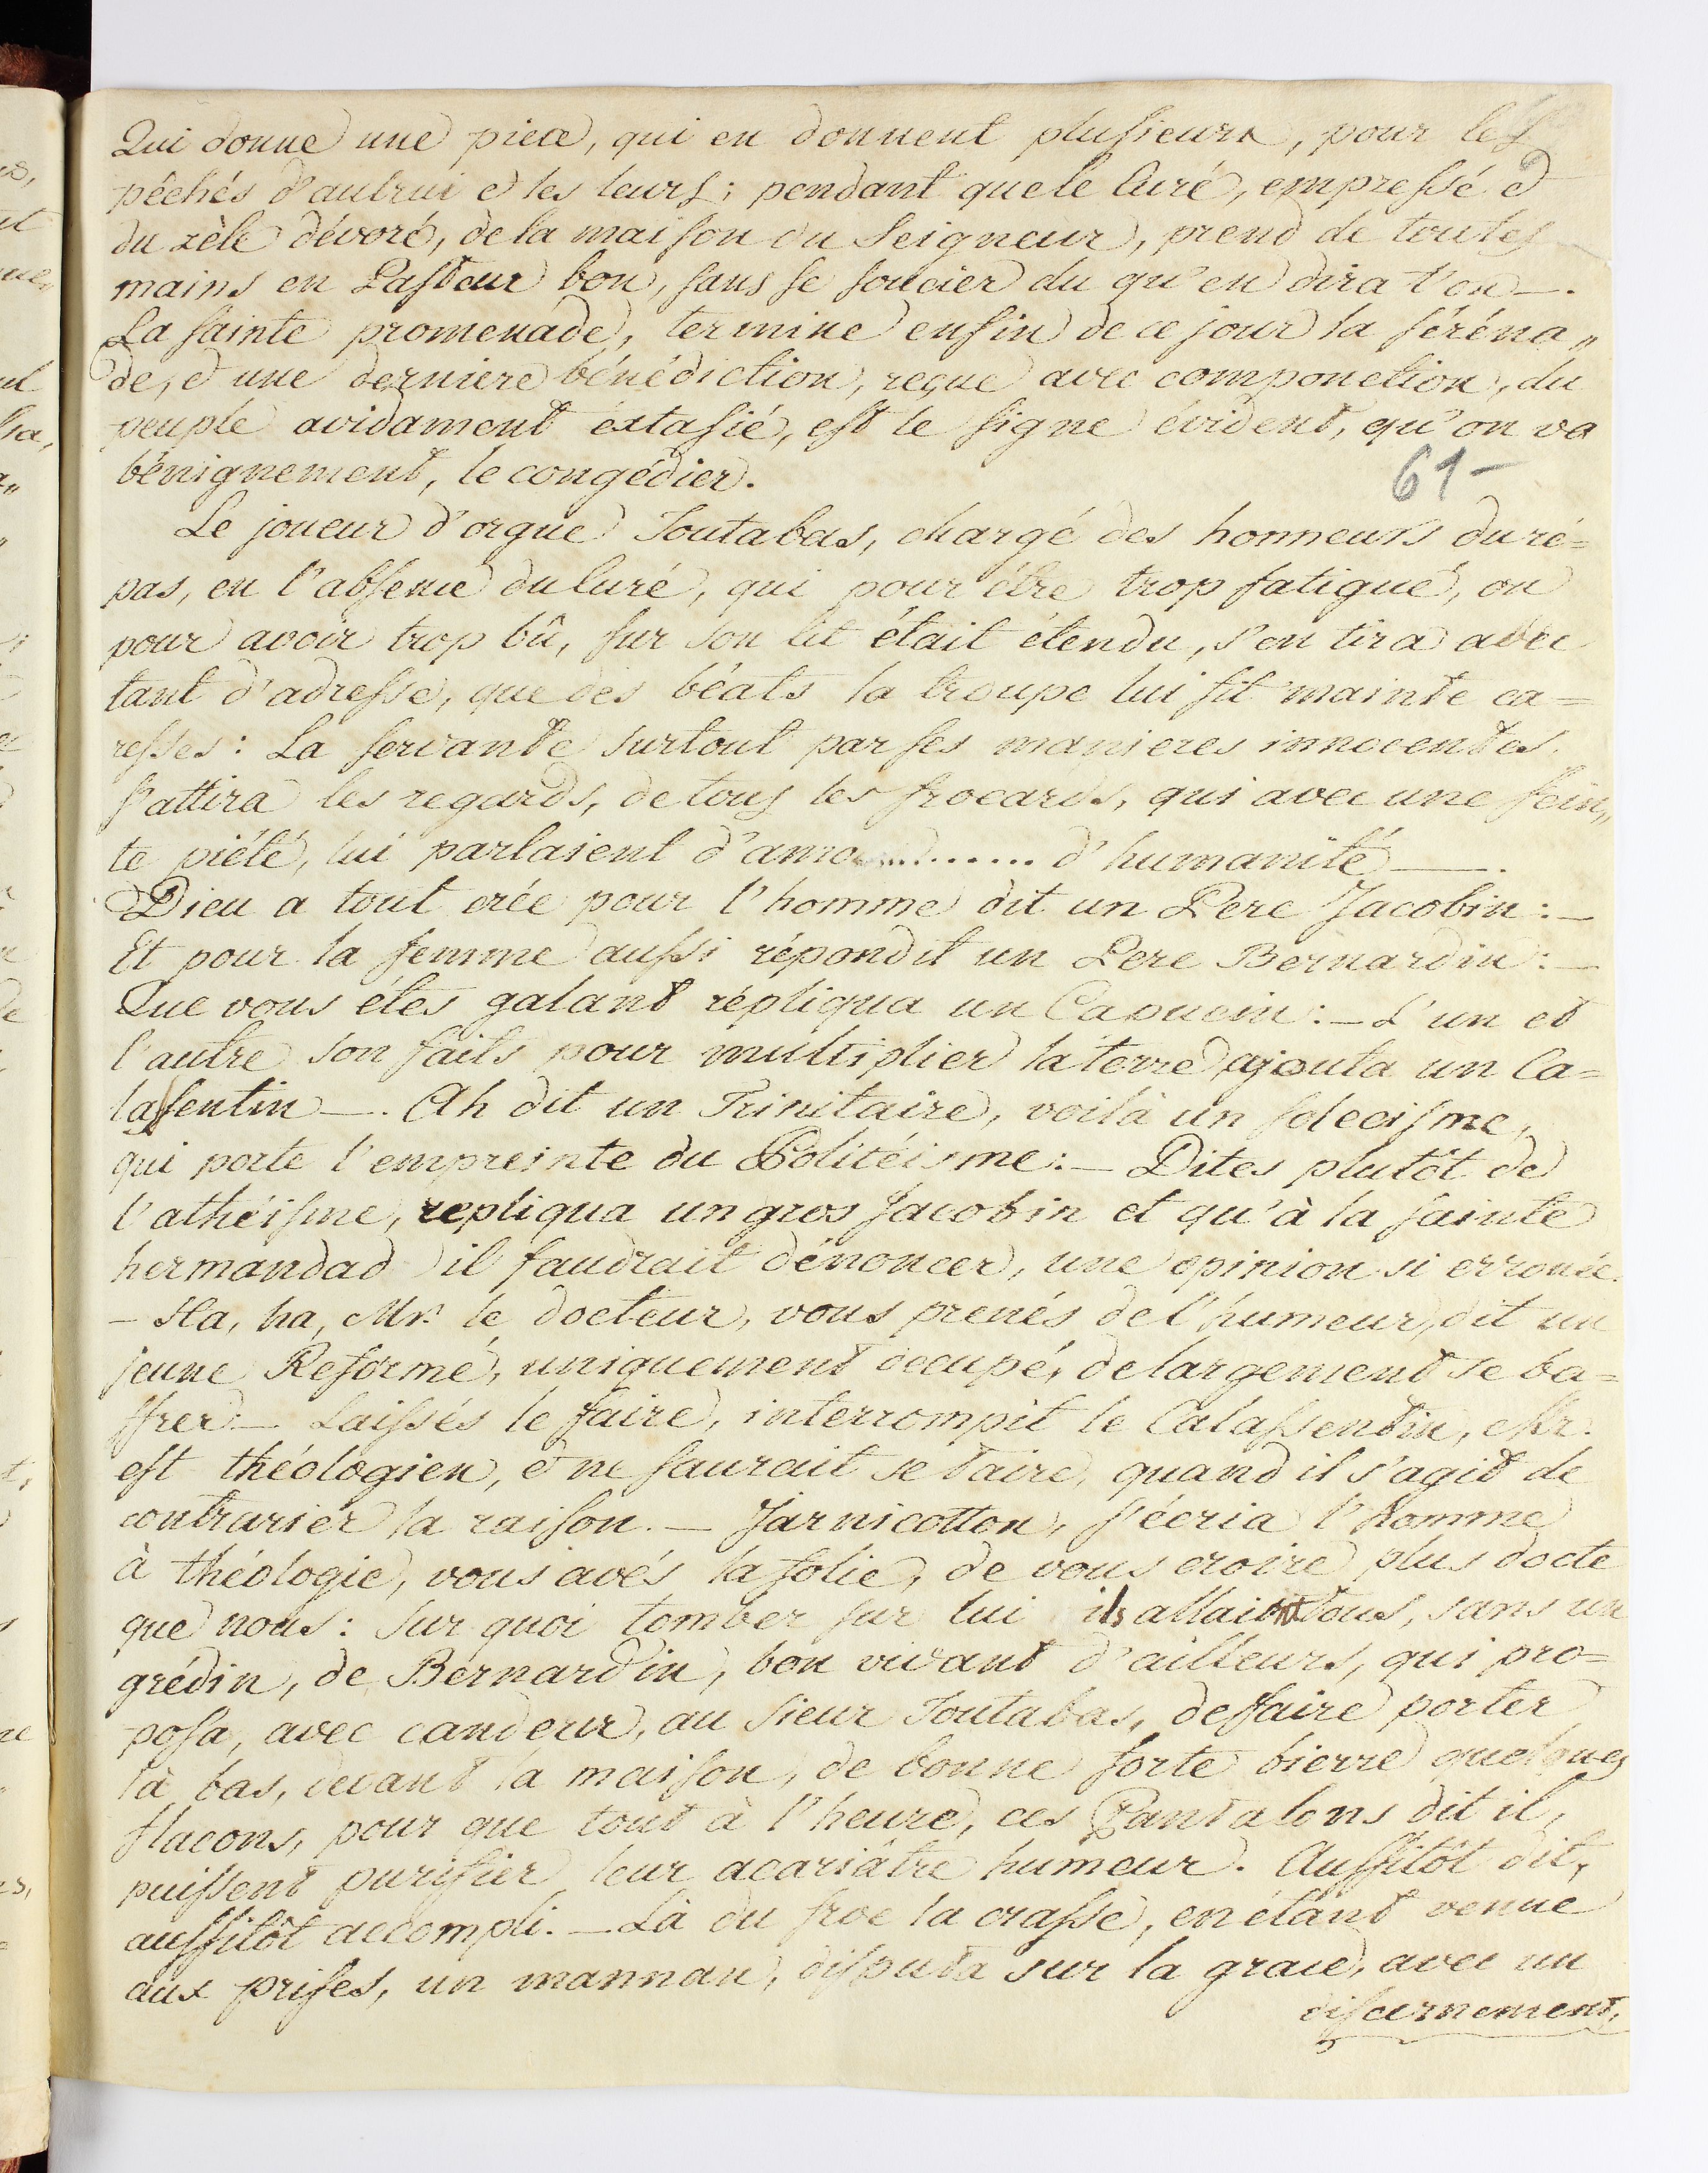 Qui donne une piece, qui en donnent plusieurs, pour les
péchés d'autrui et les leurs; pendant que le Curé, empressé et
du zèle dévoré, de la maison du Seigneur, prend de toutes
mains en Pasteur bon, sans se soucier du qu'en dira t'on —.
La sainte promenade, termine enfin de ce jour la séréna„
de, et une derniere bénédiction, reçue avec componction, du
peuple avidament éxtasié, est le signe évident, qu'on va
bénignement, le congédier.
61-
Le joueur d'orgue Toutabas, chargé des honneurs du ré=
pas, en l'absence du Curé, qui pour être trop fatigué, ou
pour avoir trop bû, sur son lit était étendu, s'en tira avec
tant d'adresse, que des béats la troupe lui fit mainte ca=
resses: La servante surtout par ses manieres innocentes.
s'attira les regards, de tous les frocards, qui avec une fein„
te piété, lui parlaient d'amo.......... d'humanité —.
Dieu a tout crée pour l'homme dit un Pere Jacobin: —
Et pour la femme aussi répondit un Pere Bernardin: —
Que vous étes galant répliqua un Capucin: — L'un et
l'autre son faits pour multiplier la terre ajouta un Ca=
lassentin —. Ah dit un Trinitaire, voilà un solecisme,
qui porte l'empreinte du Politéisme: — Dites plutôt de
l'athéisme, repliqua un gros Jacobin et qu'à la sainte
hermandad il faudrait dénoncer, une opinion si erronée.
— Ha, ha, Mr. le docteur, vous prenés de l'humeur, dit un
jeune Reformé, uniquement occupé, de largement se ba=
ffrer. — Laissés le faire, interrompit le Calassentin, Mr.
est théologien, et ne saurait se taire, quand il s'agit de
contrarier la raison. — Jarnicotton, s'écria l'homme
à théologie, vous avés la folie, de vous croire plus docte
que nous: sur quoi tomber sur lui ils allaient tous, sans un
grédin, de Bernardin, bon vivant d'ailleurs, qui pro=
posa, avec candeur, au sieur Toutabas, de faire porter
là bas, devant la maison, de bonne forte bierre quelques
flacons, pour que tout à l'heure, ces Pantalons dit il,
puissent purifier leur acariâtre humeur. Aussitôt dit,
aussitôt accompli. — Là du froc la crasse, en étant venue
aux prises, un mannan, disputa sur la grace, avec un
discernement,